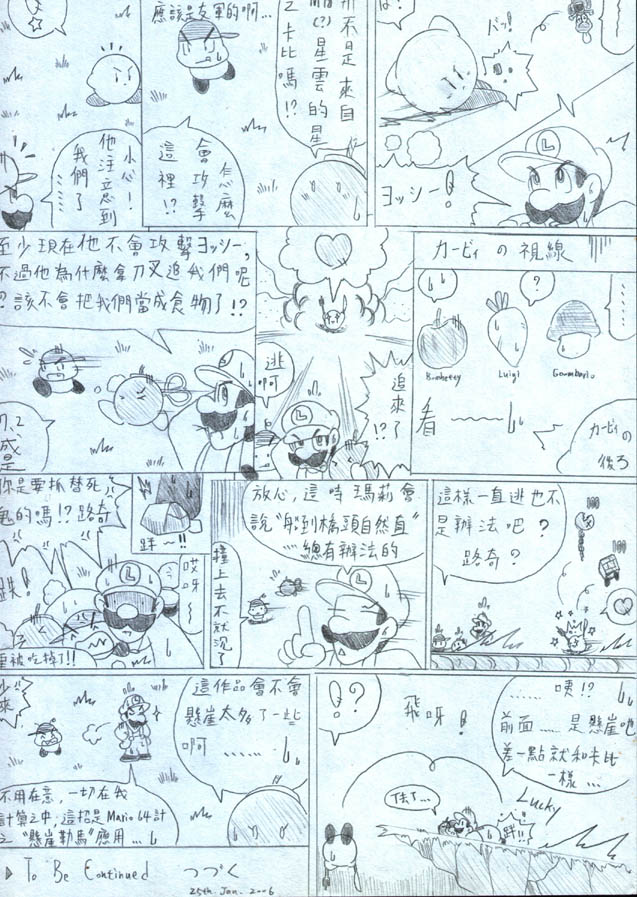 ドッ!
ヨッシー!
不是來自
星雲的星
之卡比嗎!?
應該是友軍的啊...
怎麼
會攻擊
這裡!?
小心!
他注意到
我們了
......
カービィの視線
!!
?
Luigi
Goombario
看
カービィの
後ろ
追來了!?
逃啊
至少現在他不會攻擊ヨッシー,
不過他為什麼拿刀叉追我們呢
?該不會把我們當成食物了!?
這樣一直逃也不
是辦法吧?
路奇?
放心,這時瑪莉會
說"船到橋頭自然直"
......總有辦法的
撞上去不就沉了
哎呀~
你是要抓替死
鬼的嗎!?路奇
被吃掉了!!
......咦!?
前面......是懸崖吧
差一點就和卡比
一樣...
飛呀!
!?
Lucky
這作品會不會
懸崖太多了一些
啊......
不用在意,一切在我
計算之中,這招是Mario 64計
之"懸崖勒馬"應用...
To Be Continued つづく
25th. Jan. 2006